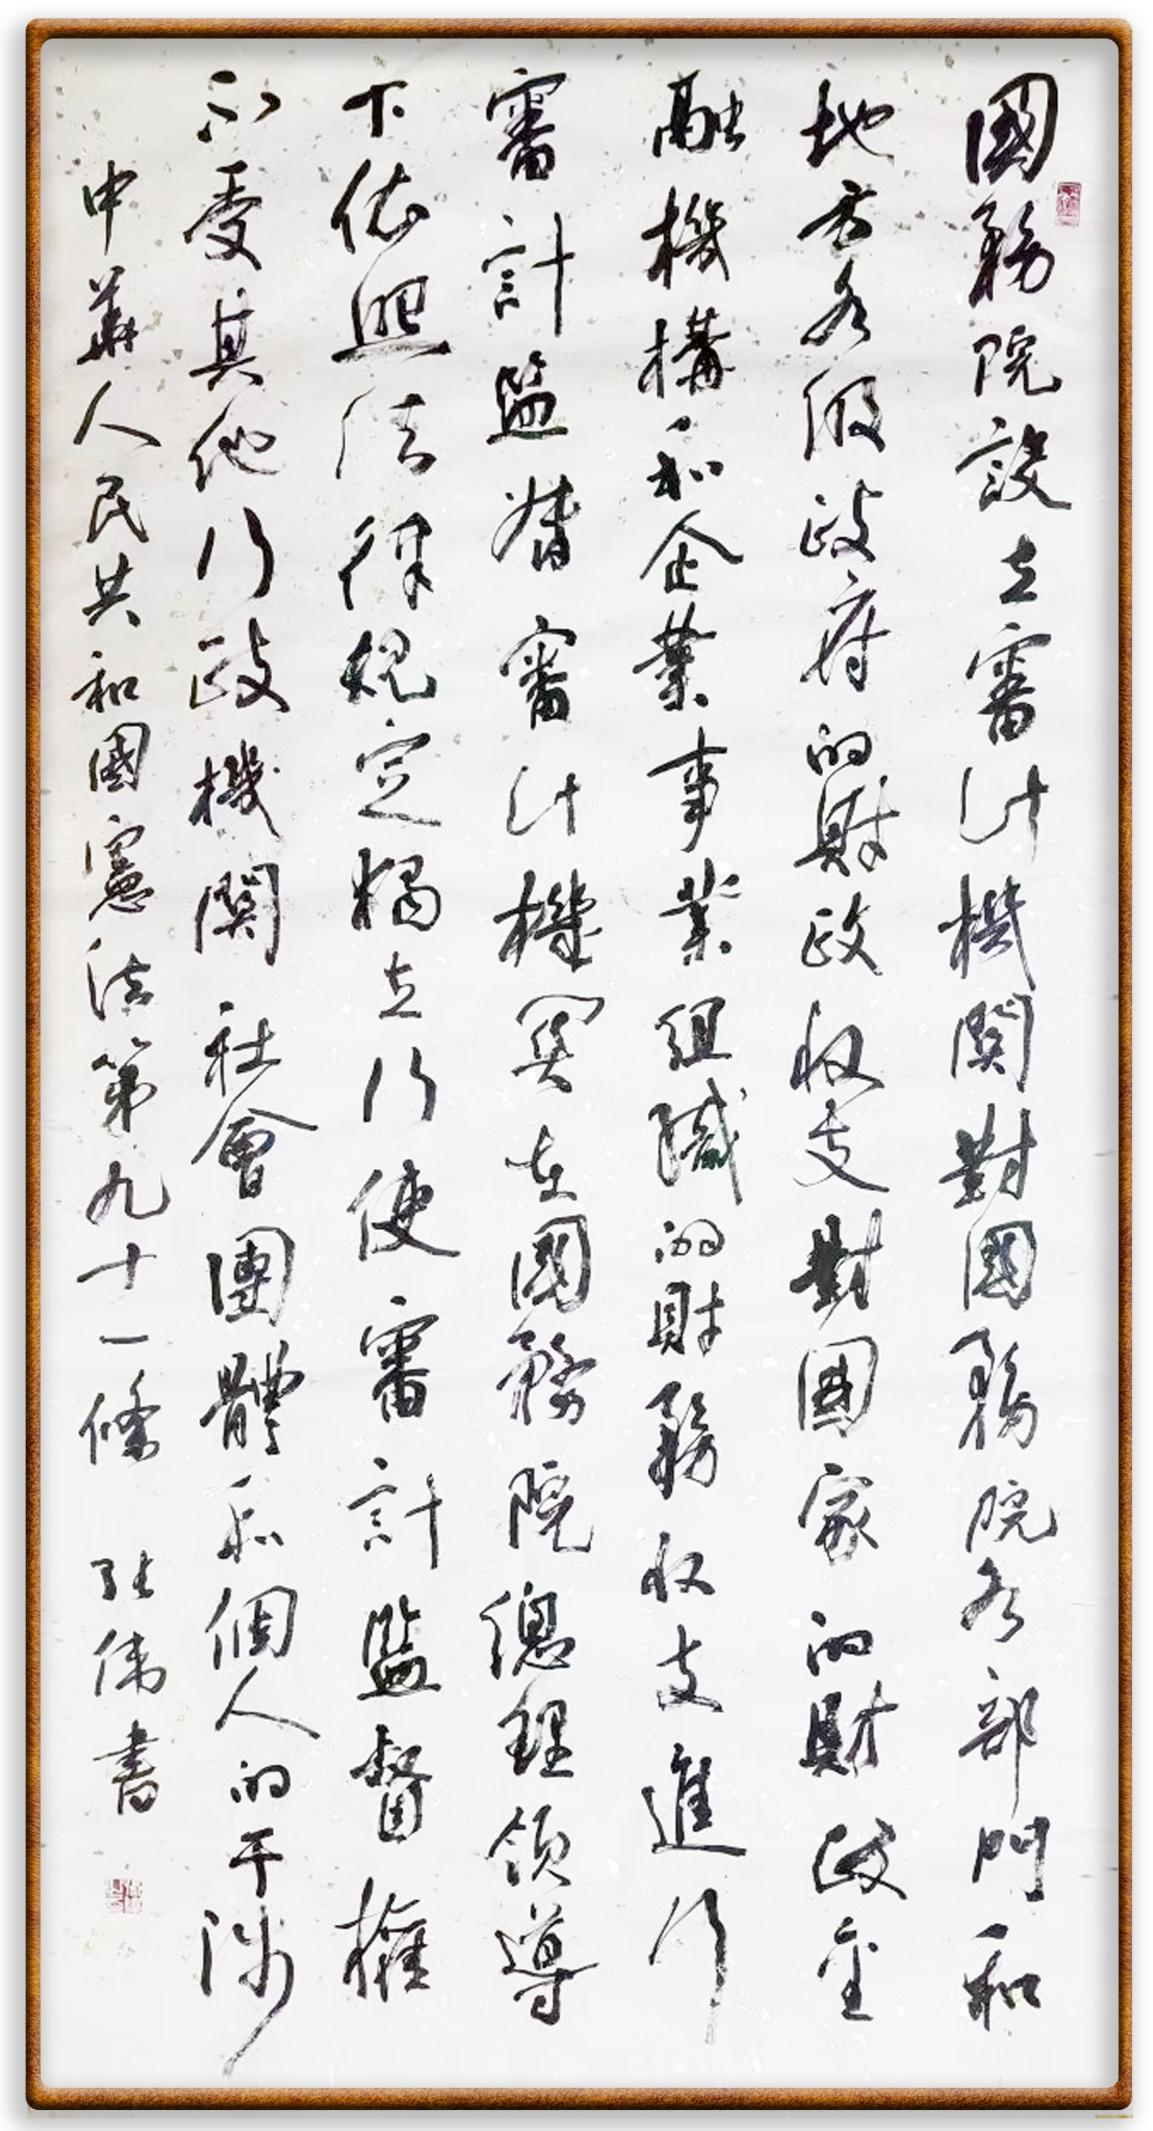 國務院設立審計機關對國務院各部門和
地方各級政府的財政收支對國家的財政金
融機構和企業事業組織的財務收支進行
審計監督審計機關在國務院總理領導
下依照法律規定獨立行使審計監督權
不受其他行政機關社會團體和個人的干涉
中華人民共和國憲法第九十一條 張偉書